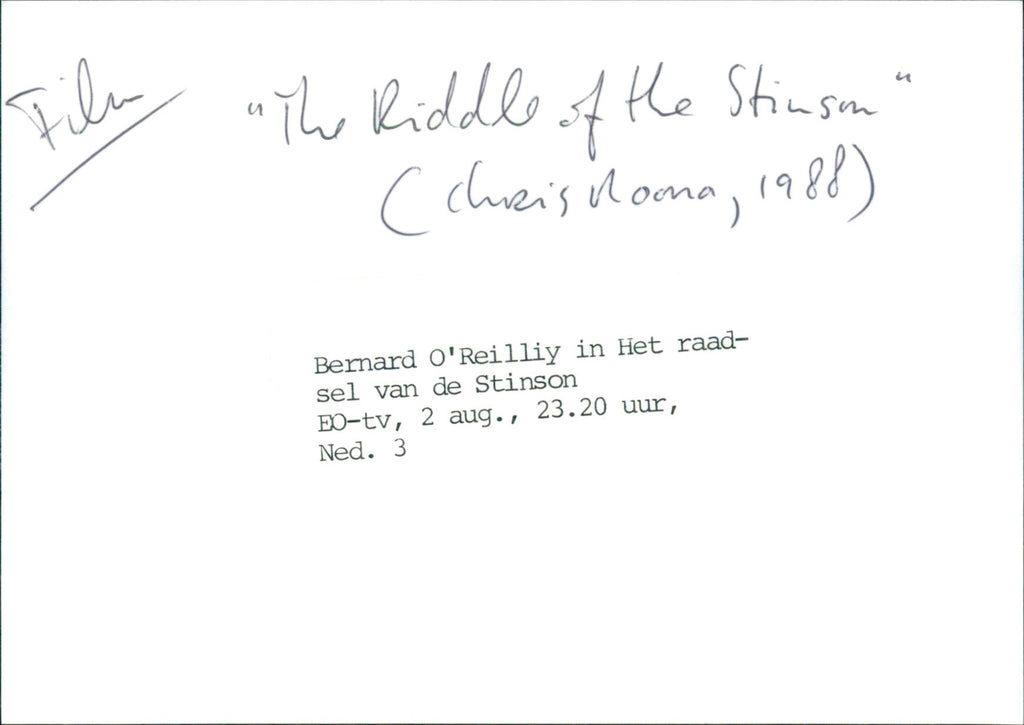 Film
"The Riddle of the Stinson"
(Chris Noona, 1988)
Bernard O'Reilliy in Het raad-
sel van de Stinson
EO-tv, 2 aug., 23.20 uur,
Ned. 3